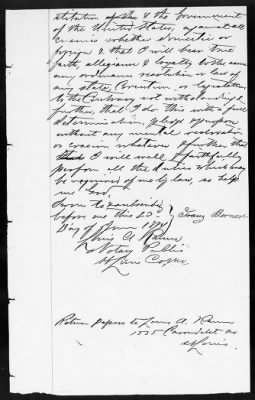 stitution of the & the Government
of the United States, against all
enemies whether domestic or
foreign & that I will bear true
faith, allegiance & loyalty to the same
any ordinance resolution or law of
any state, Convention, or Legislature
to the Contrary notwithstanding &
further, that I do this with a full
determination, pledge & purpose
without any mental reservation
or evasion whatever & further that
I will well & faithfully
perform all the duties which may
be required of me by law, so help
me God.
Sworn to & subscribed
before me this 23d
Day of
Louis A.
Notary Public
St Louis Co Mo
Franz
Return papers to Louis A.
1535 Carondelet Av
St Louis.